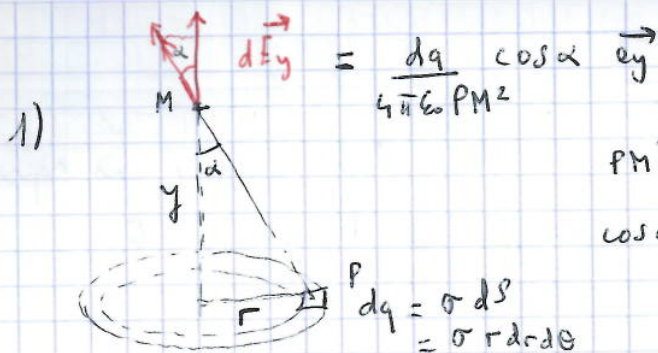 dEy = dq / 4πε₀ PM² cos α ey
α
M
1)
α
PM
y
cos
P
r
dq = σ dS
= σ r dr dθ